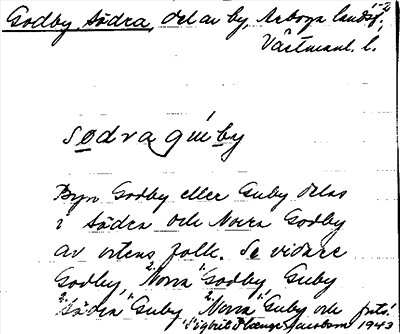 Godby, Södra, del av by, Arboga landsf.,
Västmanl. l.
södra gúby
Byn Godby eller Guby delas
i Södra och Norra Godby
av ortens folk. Se vidare
Godby, Norra Godby, Guby
Södra Guby, Norra Guby och
Sigbrit Plænge Jacobson 1943